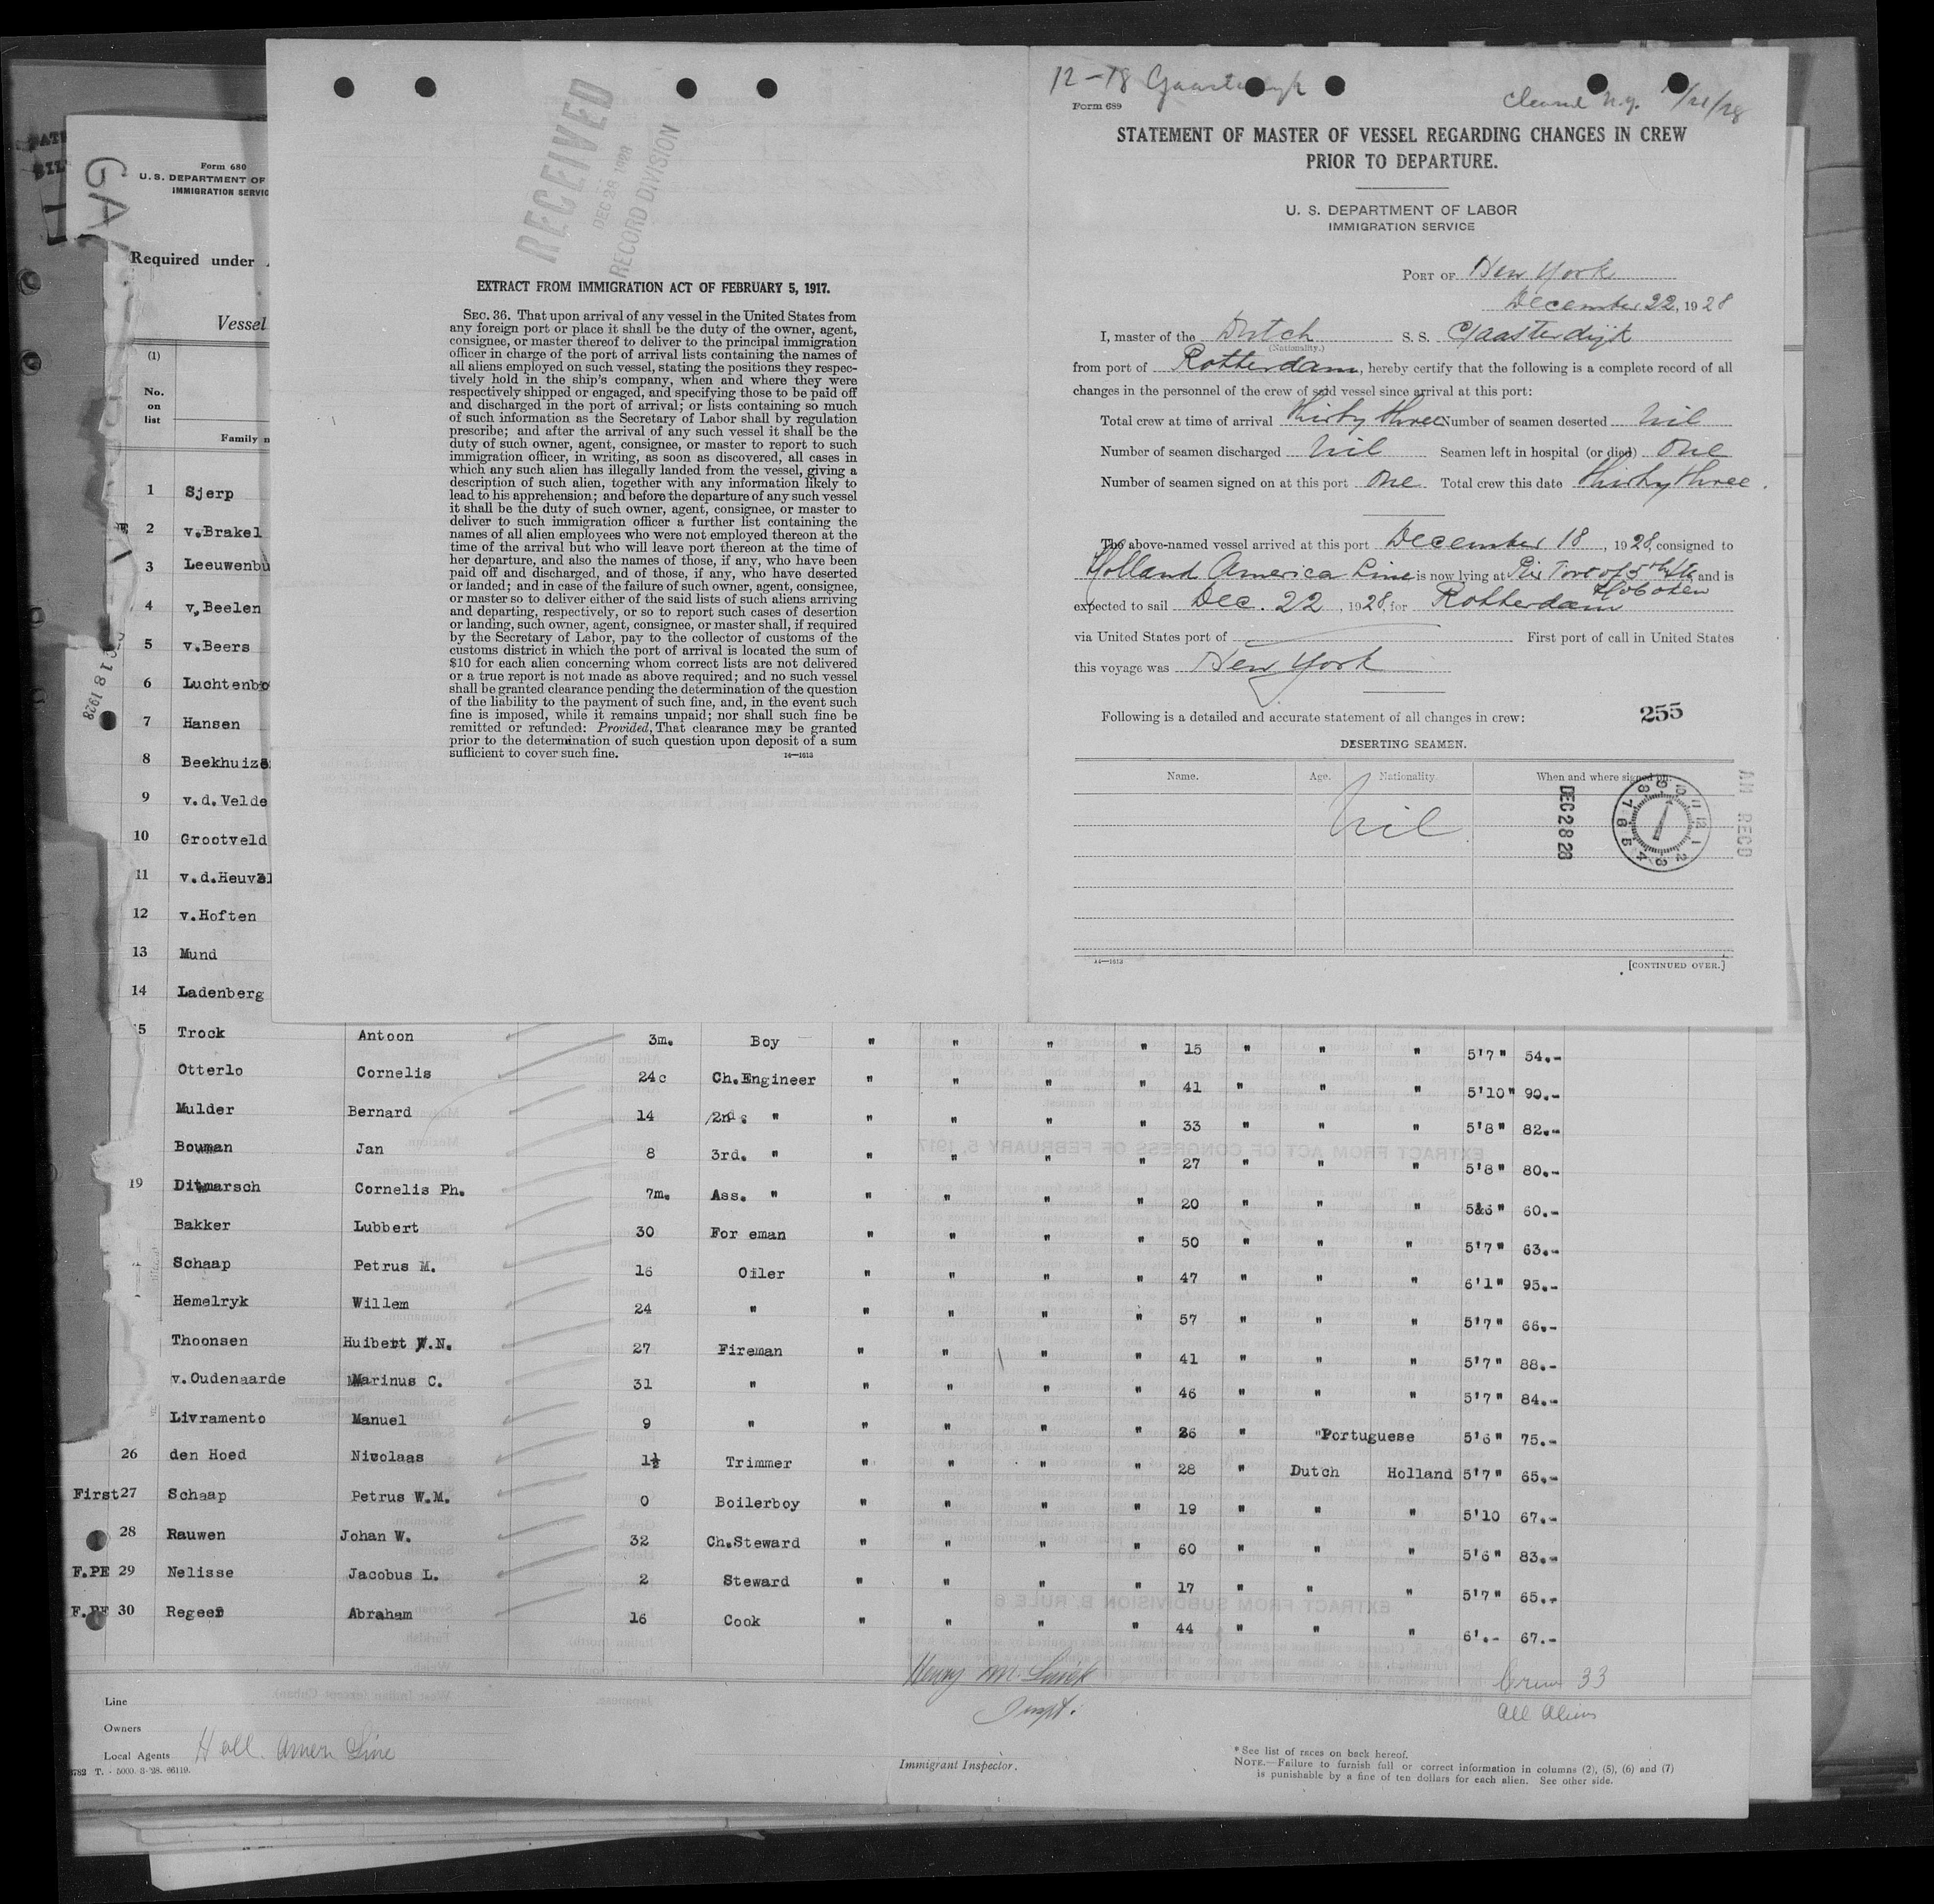 12-18 Gaasterdijk
Form 689
Cleared N.Y.
STATEMENT OF MASTER OF VESSEL REGARDING CHANGES IN CREW
PRIOR TO DEPARTURE.
U. S. DEPARTMENT OF LABOR
IMMIGRATION SERVICE
PORT OF New York
December 22, 1928
I, master of the Dutch S. S. Gaasterdijk
(Nationality.)
from port of Rotterdam, hereby certify that the following is a complete record of all
changes in the personnel of the crew of said vessel since arrival at this port:
Total crew at time of arrival thirty three Number of seamen deserted nil
Number of seamen discharged nil Seamen left in hospital (or died) One
Number of seamen signed on at this port One Total crew this date thirty three.
The above-named vessel arrived at this port December 18, 1928, consigned to
Holland America Line is now lying at Pier foot of 5th Str and is
Hoboken
expected to sail Dec. 22, 1928, for Rotterdam
via United States port of First port of call in United States
this voyage was New York
Following is a detailed and accurate statement of all changes in crew: 255
DESERTING SEAMEN.
Name. Age. Nationality. When and where signed on:
nil
DEC 28 28
AM RECD
14—1613
[CONTINUED OVER.]
RECEIVED
DEC 28 1928
RECORD DIVISION
EXTRACT FROM IMMIGRATION ACT OF FEBRUARY 5, 1917.
SEC. 36. That upon arrival of any vessel in the United States from
any foreign port or place it shall be the duty of the owner, agent,
consignee, or master thereof to deliver to the principal immigration
officer in charge of the port of arrival lists containing the names of
all aliens employed on such vessel, stating the positions they respec-
tively hold in the ship's company, when and where they were
respectively shipped or engaged, and specifying those to be paid off
and discharged in the port of arrival; or lists containing so much
of such information as the Secretary of Labor shall by regulation
prescribe; and after the arrival of any such vessel it shall be the
duty of such owner, agent, consignee, or master to report to such
immigration officer, in writing, as soon as discovered, all cases in
which any such alien has illegally landed from the vessel, giving a
description of such alien, together with any information likely to
lead to his apprehension; and before the departure of any such vessel
it shall be the duty of such owner, agent, consignee, or master to
deliver to such immigration officer a further list containing the
names of all alien employees who were not employed thereon at the
time of the arrival but who will leave port thereon at the time of
her departure, and also the names of those, if any, who have been
paid off and discharged, and of those, if any, who have deserted
or landed; and in case of the failure of such owner, agent, consignee,
or master so to deliver either of the said lists of such aliens arriving
and departing, respectively, or so to report such cases of desertion
or landing, such owner, agent, consignee, or master shall, if required
by the Secretary of Labor, pay to the collector of customs of the
customs district in which the port of arrival is located the sum of
$10 for each alien concerning whom correct lists are not delivered
or a true report is not made as above required; and no such vessel
shall be granted clearance pending the determination of the question
of the liability to the payment of such fine, and, in the event such
fine is imposed, while it remains unpaid; nor shall such fine be
remitted or refunded: Provided, That clearance may be granted
prior to the determination of such question upon deposit of a sum
sufficient to cover such fine. 14—1613
Form 680
U. S. DEPARTMENT OF
IMMIGRATION SERVIC
Required under
Vessel
(1)
No.
on
list
Family n
1 Sjerp
2 v.Brakel
3 Leeuwenbu
4 v.Beelen
5 v.Beers
6 Luchtenbo
7 Hansen
8 Beekhuize
9 v.d.Velde
10 Grootveld
11 v.d.Heuvel
12 v.Hoften
13 Mund
14 Ladenberg
5 Trock Antoon 3m. Boy " " " " 15 " " " 5'7" 54.-
Otterlo Cornelis 24c Ch.Engineer " " " " 41 " " " 5'10" 90.-
Mulder Bernard 14 2nd. " " " " " 33 " " " 5'8" 82.-
Bouman Jan 8 3rd. " " " " " 27 " " " 5'8" 80.-
19 Ditmarsch Cornelis Ph. 7m. Ass. " " " " " 20 " " " 5&6" 60.-
Bakker Lubbert 30 For eman " " " " 50 " " " 5'7" 63.-
Schaap Petrus M. 16 Oiler " " " " 47 " " " 6'1" 95.-
Hemelryk Willem 24 " " " " " 57 " " " 5'7" 66.-
Thoonsen Huibert W.N. 27 Fireman " " " " 41 " " " 5'7" 88.-
v.Oudenaarde Marinus C. 31 " " " " " 46 " " " 5'7" 84.-
Livramento Manuel 9 " " " " " 26 " "Portuguese 5'6" 75.-
26 den Hoed Nicolaas 1½ Trimmer " " " " 28 " Dutch Holland 5'7" 65.-
First 27 Schaap Petrus W.M. 0 Boilerboy " " " " 19 " " " 5'10 67.-
28 Rauwen Johan W. 32 Ch.Steward " " " " 60 " " " 5'6" 83.-
F.PE 29 Nelisse Jacobus L. 2 Steward " " " " 17 " " " 5'7" 65.-
F.PE 30 Regeer Abraham 16 Cook " " " " 44 " " " 6'.- 67.-
Crew 33
All Aliens
Line
Owners
Local Agents Holl. Amer. Line
Immigrant Inspector.
* See list of races on back hereof.
NOTE.—Failure to furnish full or correct information in columns (2), (5), (6) and (7)
is punishable by a fine of ten dollars for each alien. See other side.
3782 T. - 5000. 3-'28. 66119.